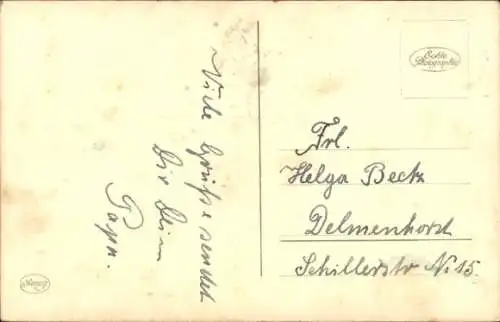 Viele Grüße sendet
Dir Dein
Papa.
Echte
Photographie
Frl.
Helga Beckz
Delmenhorst
Schillerstr No 15.